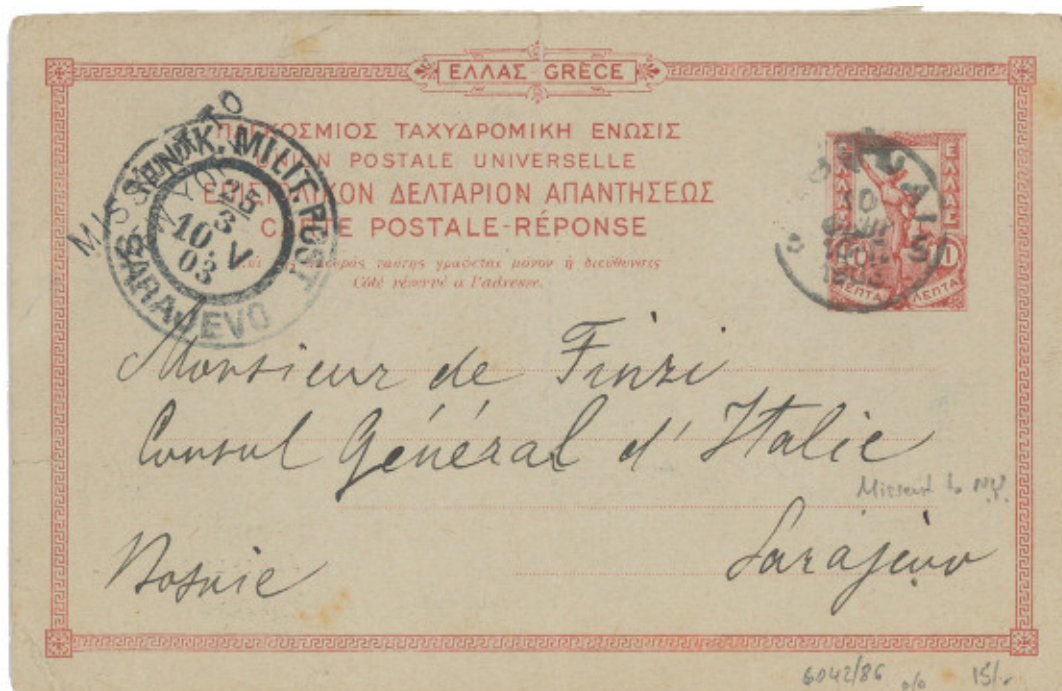 ΕΛΛΑΣ-GRÈCE
ΠΑΓΚΟΣΜΙΟΣ ΤΑΧΥΔΡΟΜΙΚΗ ΕΝΩΣΙΣ
UNION POSTALE UNIVERSELLE
ΕΠΙΣΤΟΛΙΚΟΝ ΔΕΛΤΑΡΙΟΝ ΑΠΑΝΤΗΣΕΩΣ
CARTE POSTALE-RÉPONSE
ταύτης γράφεται μόνον ἡ διεύθυνσις
Côté réservé a l'adresse.
MISSENT TO
K. MILIT. POST
SARAJEVO
25
3
10. V
03
30
ΕΛΛΑΣ
10
ΛΕΠΤΑ ΛΕΠΤΑ
Monsieur de Finzi
Consul Général d'Italie
Missent to N.Y.
Sarajevo
Bosnie
6042/86 o/o 15/-